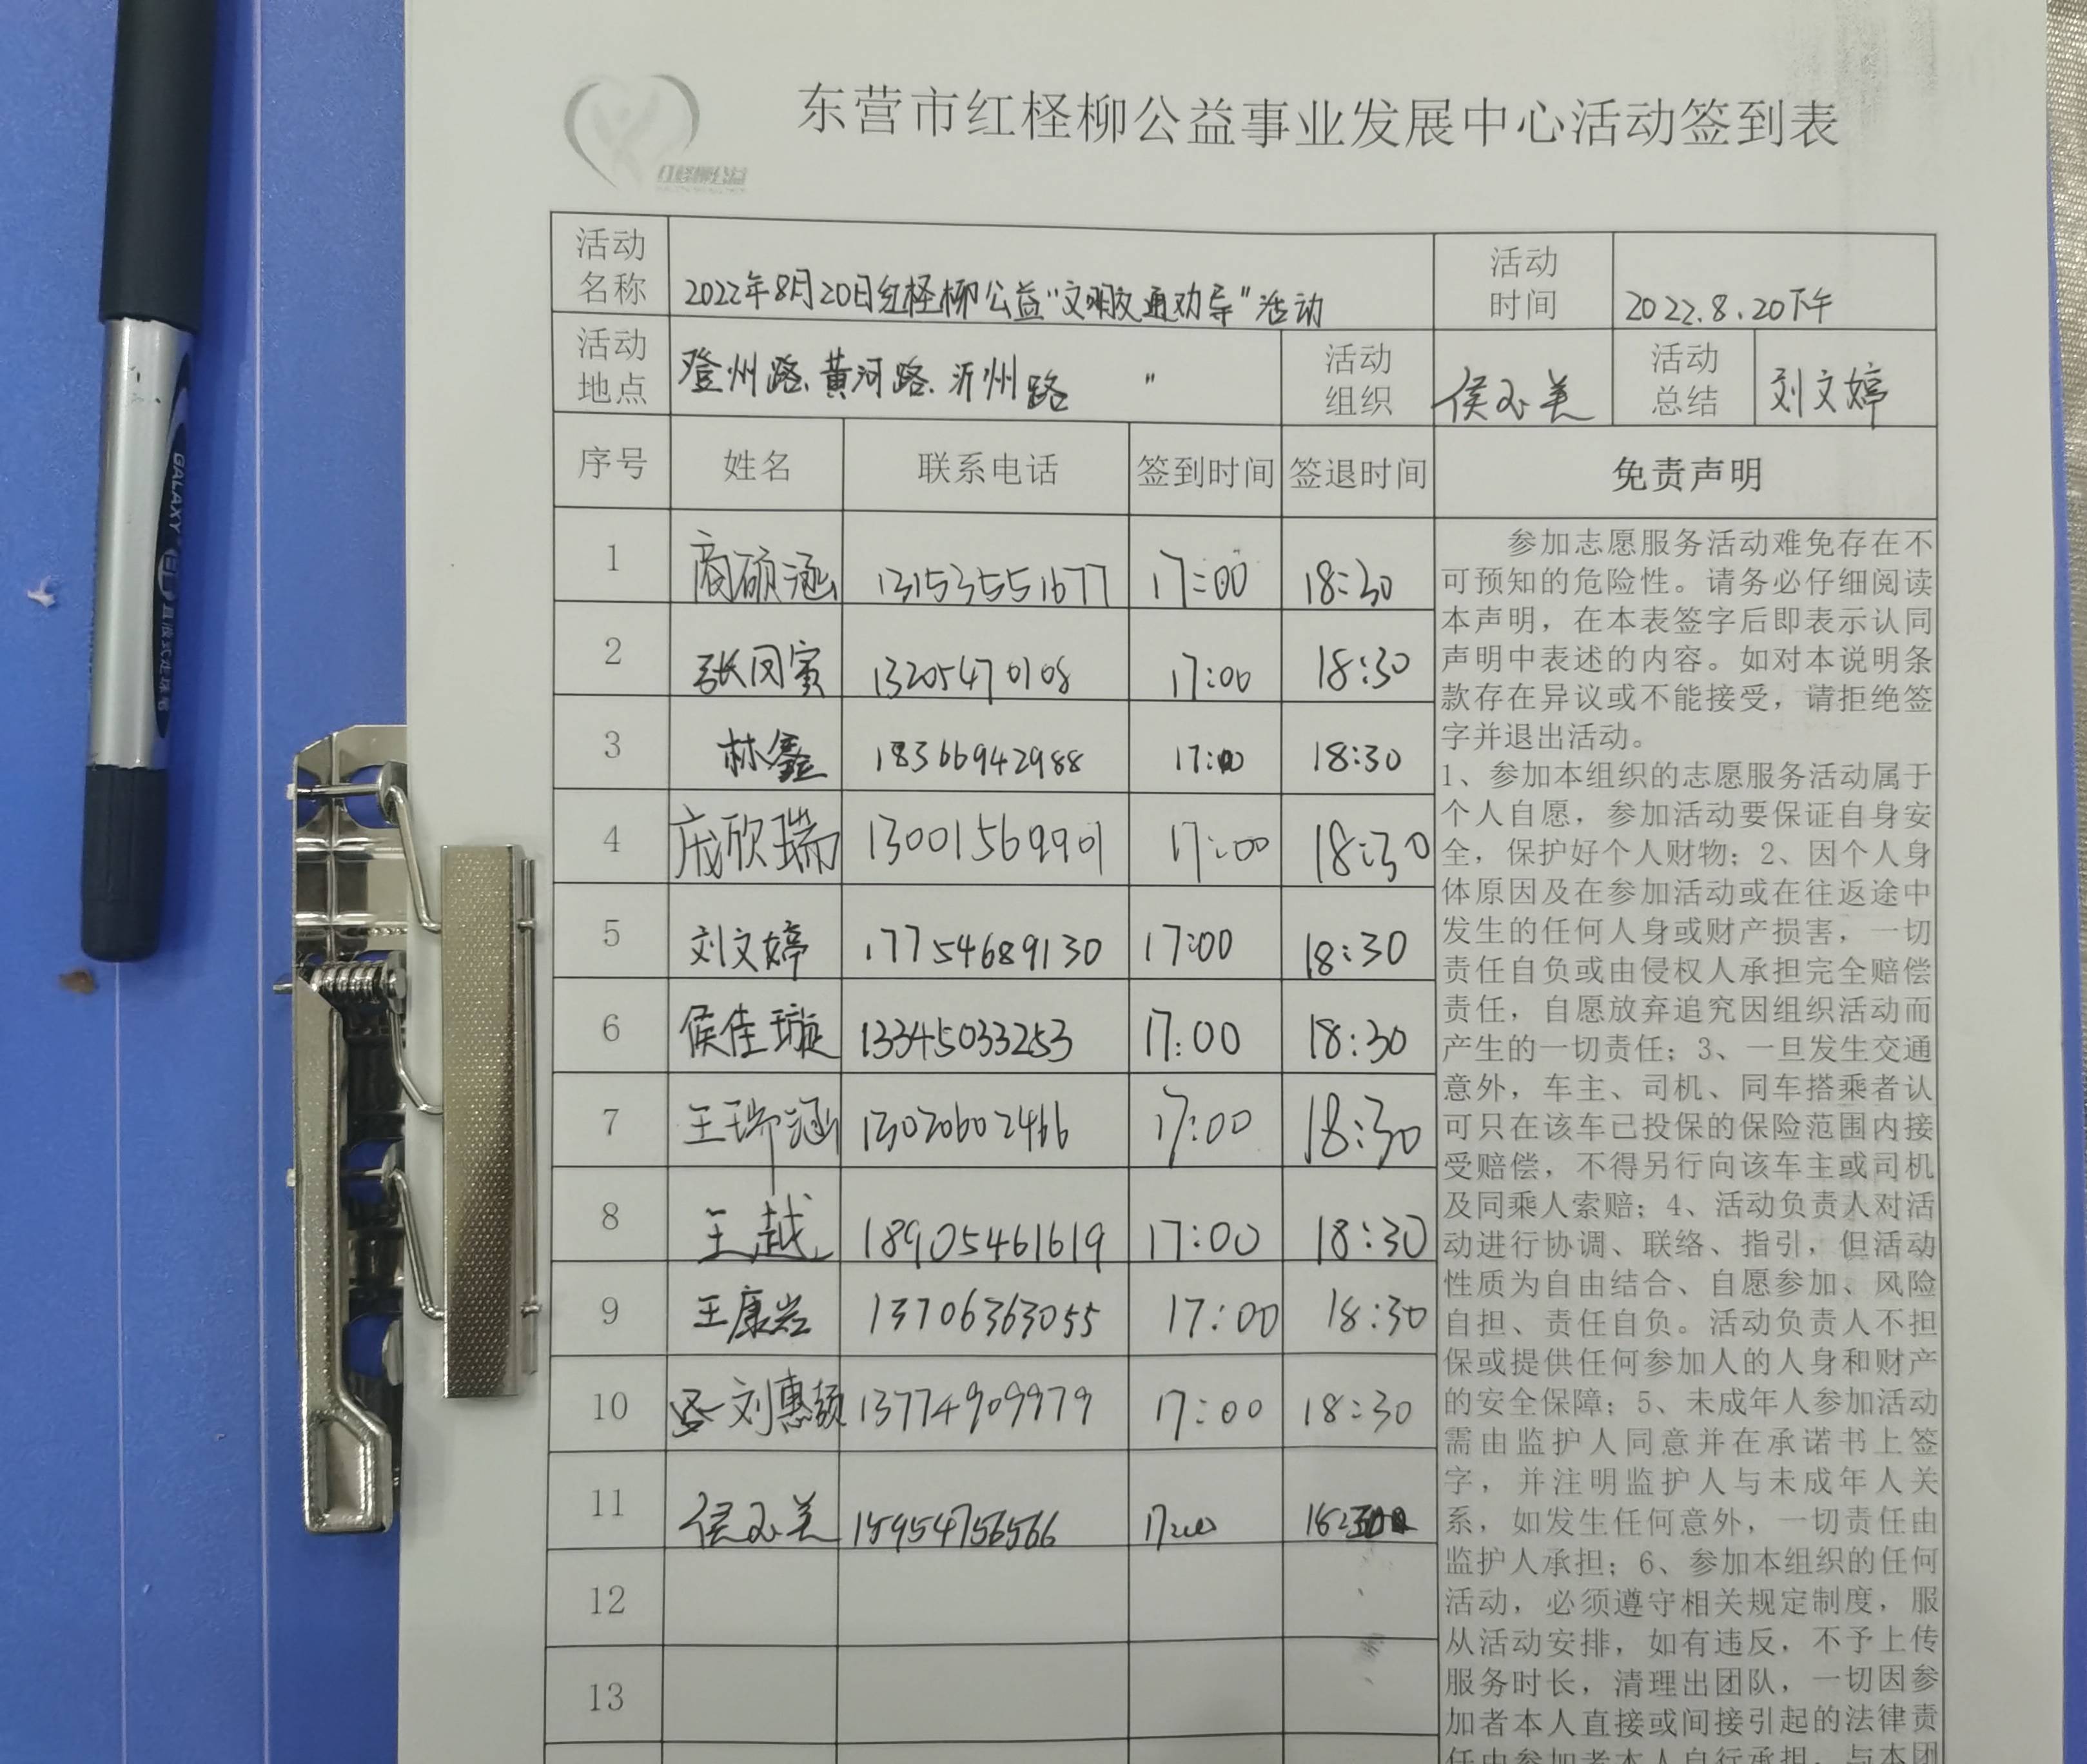 东营市红柽柳公益事业发展中心活动签到表
红柽柳公益
活动名称 2022年8月20日红柽柳公益"文明交通劝导"活动 活动时间 2022.8.20下午
活动地点 登州路、黄河路、沂州路 " 活动组织 侯玉美 活动总结 刘文婷
序号 姓名 联系电话 签到时间 签退时间 免责声明
1 商硕涵 13153551677 17:00 18:30
2 13205470108 17:00 18:30
3 林鑫 18366942988 17:00 18:30
4 欣瑞 13001569901 17:00 18:30
5 刘文婷 17754689130 17:00 18:30
6 侯佳璇 13345033253 17:00 18:30
7 王瑞涵 13020602466 17:00 18:30
8 王越 18905461619 17:00 18:30
9 王康 13706363055 17:00 18:30
10 刘惠颖 13774909979 17:00 18:30
11 侯玉美 15954756566 17:00
12
13
参加志愿服务活动难免存在不
可预知的危险性。请务必仔细阅读
本声明，在本表签字后即表示认同
声明中表述的内容。如对本说明条
款存在异议或不能接受，请拒绝签
字并退出活动。
1、参加本组织的志愿服务活动属于
个人自愿，参加活动要保证自身安
全，保护好个人财物；2、因个人身
体原因及在参加活动或在往返途中
发生的任何人身或财产损害，一切
责任自负或由侵权人承担完全赔偿
责任，自愿放弃追究因组织活动而
产生的一切责任；3、一旦发生交通
意外，车主、司机、同车搭乘者认
可只在该车已投保的保险范围内接
受赔偿，不得另行向该车主或司机
及同乘人索赔；4、活动负责人对活
动进行协调、联络、指引，但活动
性质为自由结合、自愿参加、风险
自担、责任自负。活动负责人不担
保或提供任何参加人的人身和财产
的安全保障；5、未成年人参加活动
需由监护人同意并在承诺书上签
字，并注明监护人与未成年人关
系，如发生任何意外，一切责任由
监护人承担；6、参加本组织的任何
活动，必须遵守相关规定制度，服
从活动安排，如有违反，不予上传
服务时长，清理出团队，一切因参
加者本人直接或间接引起的法律责
任由参加者本人自行承担，与本团
GALAXY
直液式走珠笔